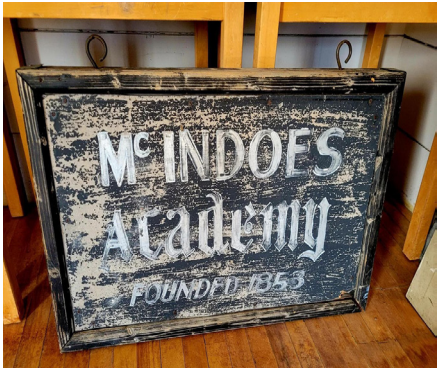 Mc INDOES
Academy
FOUNDED 1853